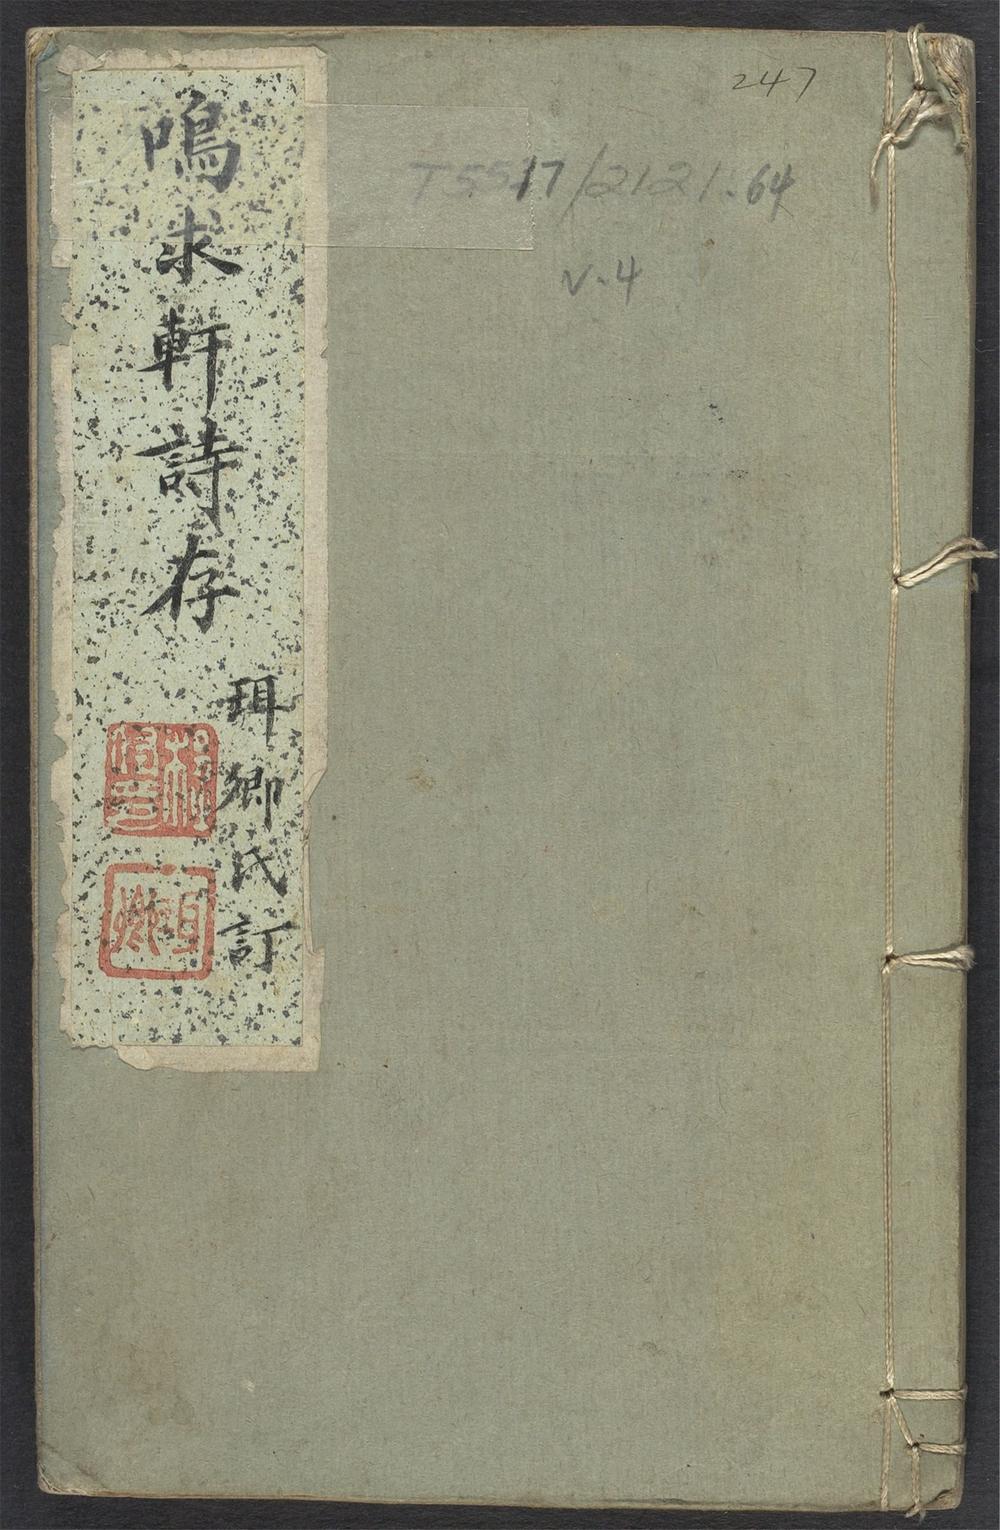 247
T5517/2121.64
v.4
鳴求軒詩存
珥卿氏訂